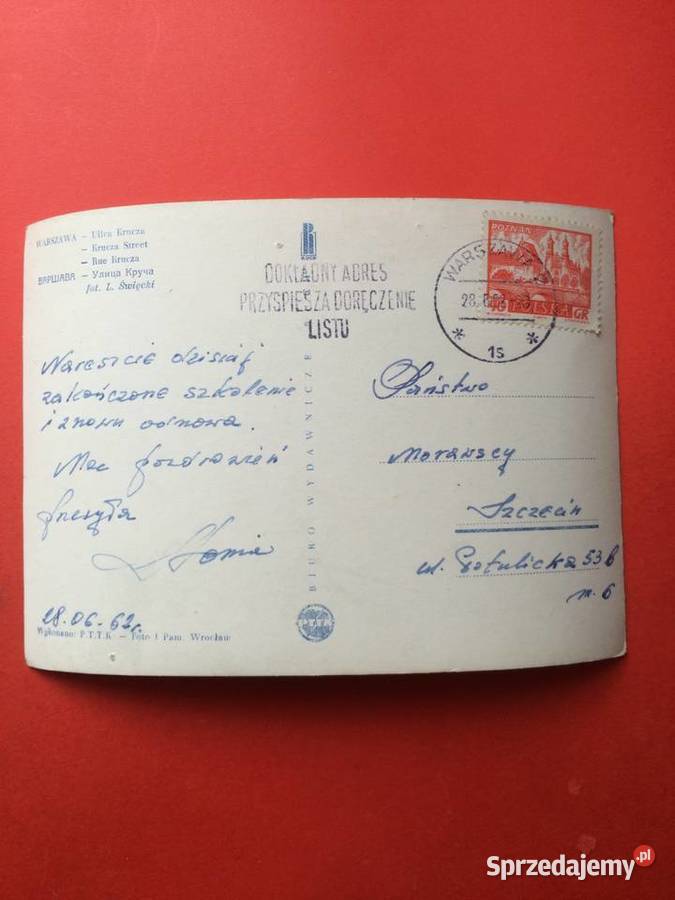 WARSZAWA – Ulica Krucza
– Krucza Street
– Rue Krucza
ВАРШАВА – Улица Круча
fot. L. Święcki
RUCH
DOKŁADNY ADRES
PRZYSPIESZA DORĘCZENIE
LISTU
WARSZAWA
28.6.
1s
POZNAŃ
40 POLSKA GR
Nareszcie dzisiaj
zakończone szkolenie
i znowu odnowa.
Moc pozdrowień
przesyła
28.06.62r.
Wykonano: P.T.T.K – Foto i Pam. Wrocław
BIURO WYDAWNICZE
P.T.T.K.
Państwo
Morawscy
Szczecin
ul. 53b
m. 6
Sprzedajemy.pl